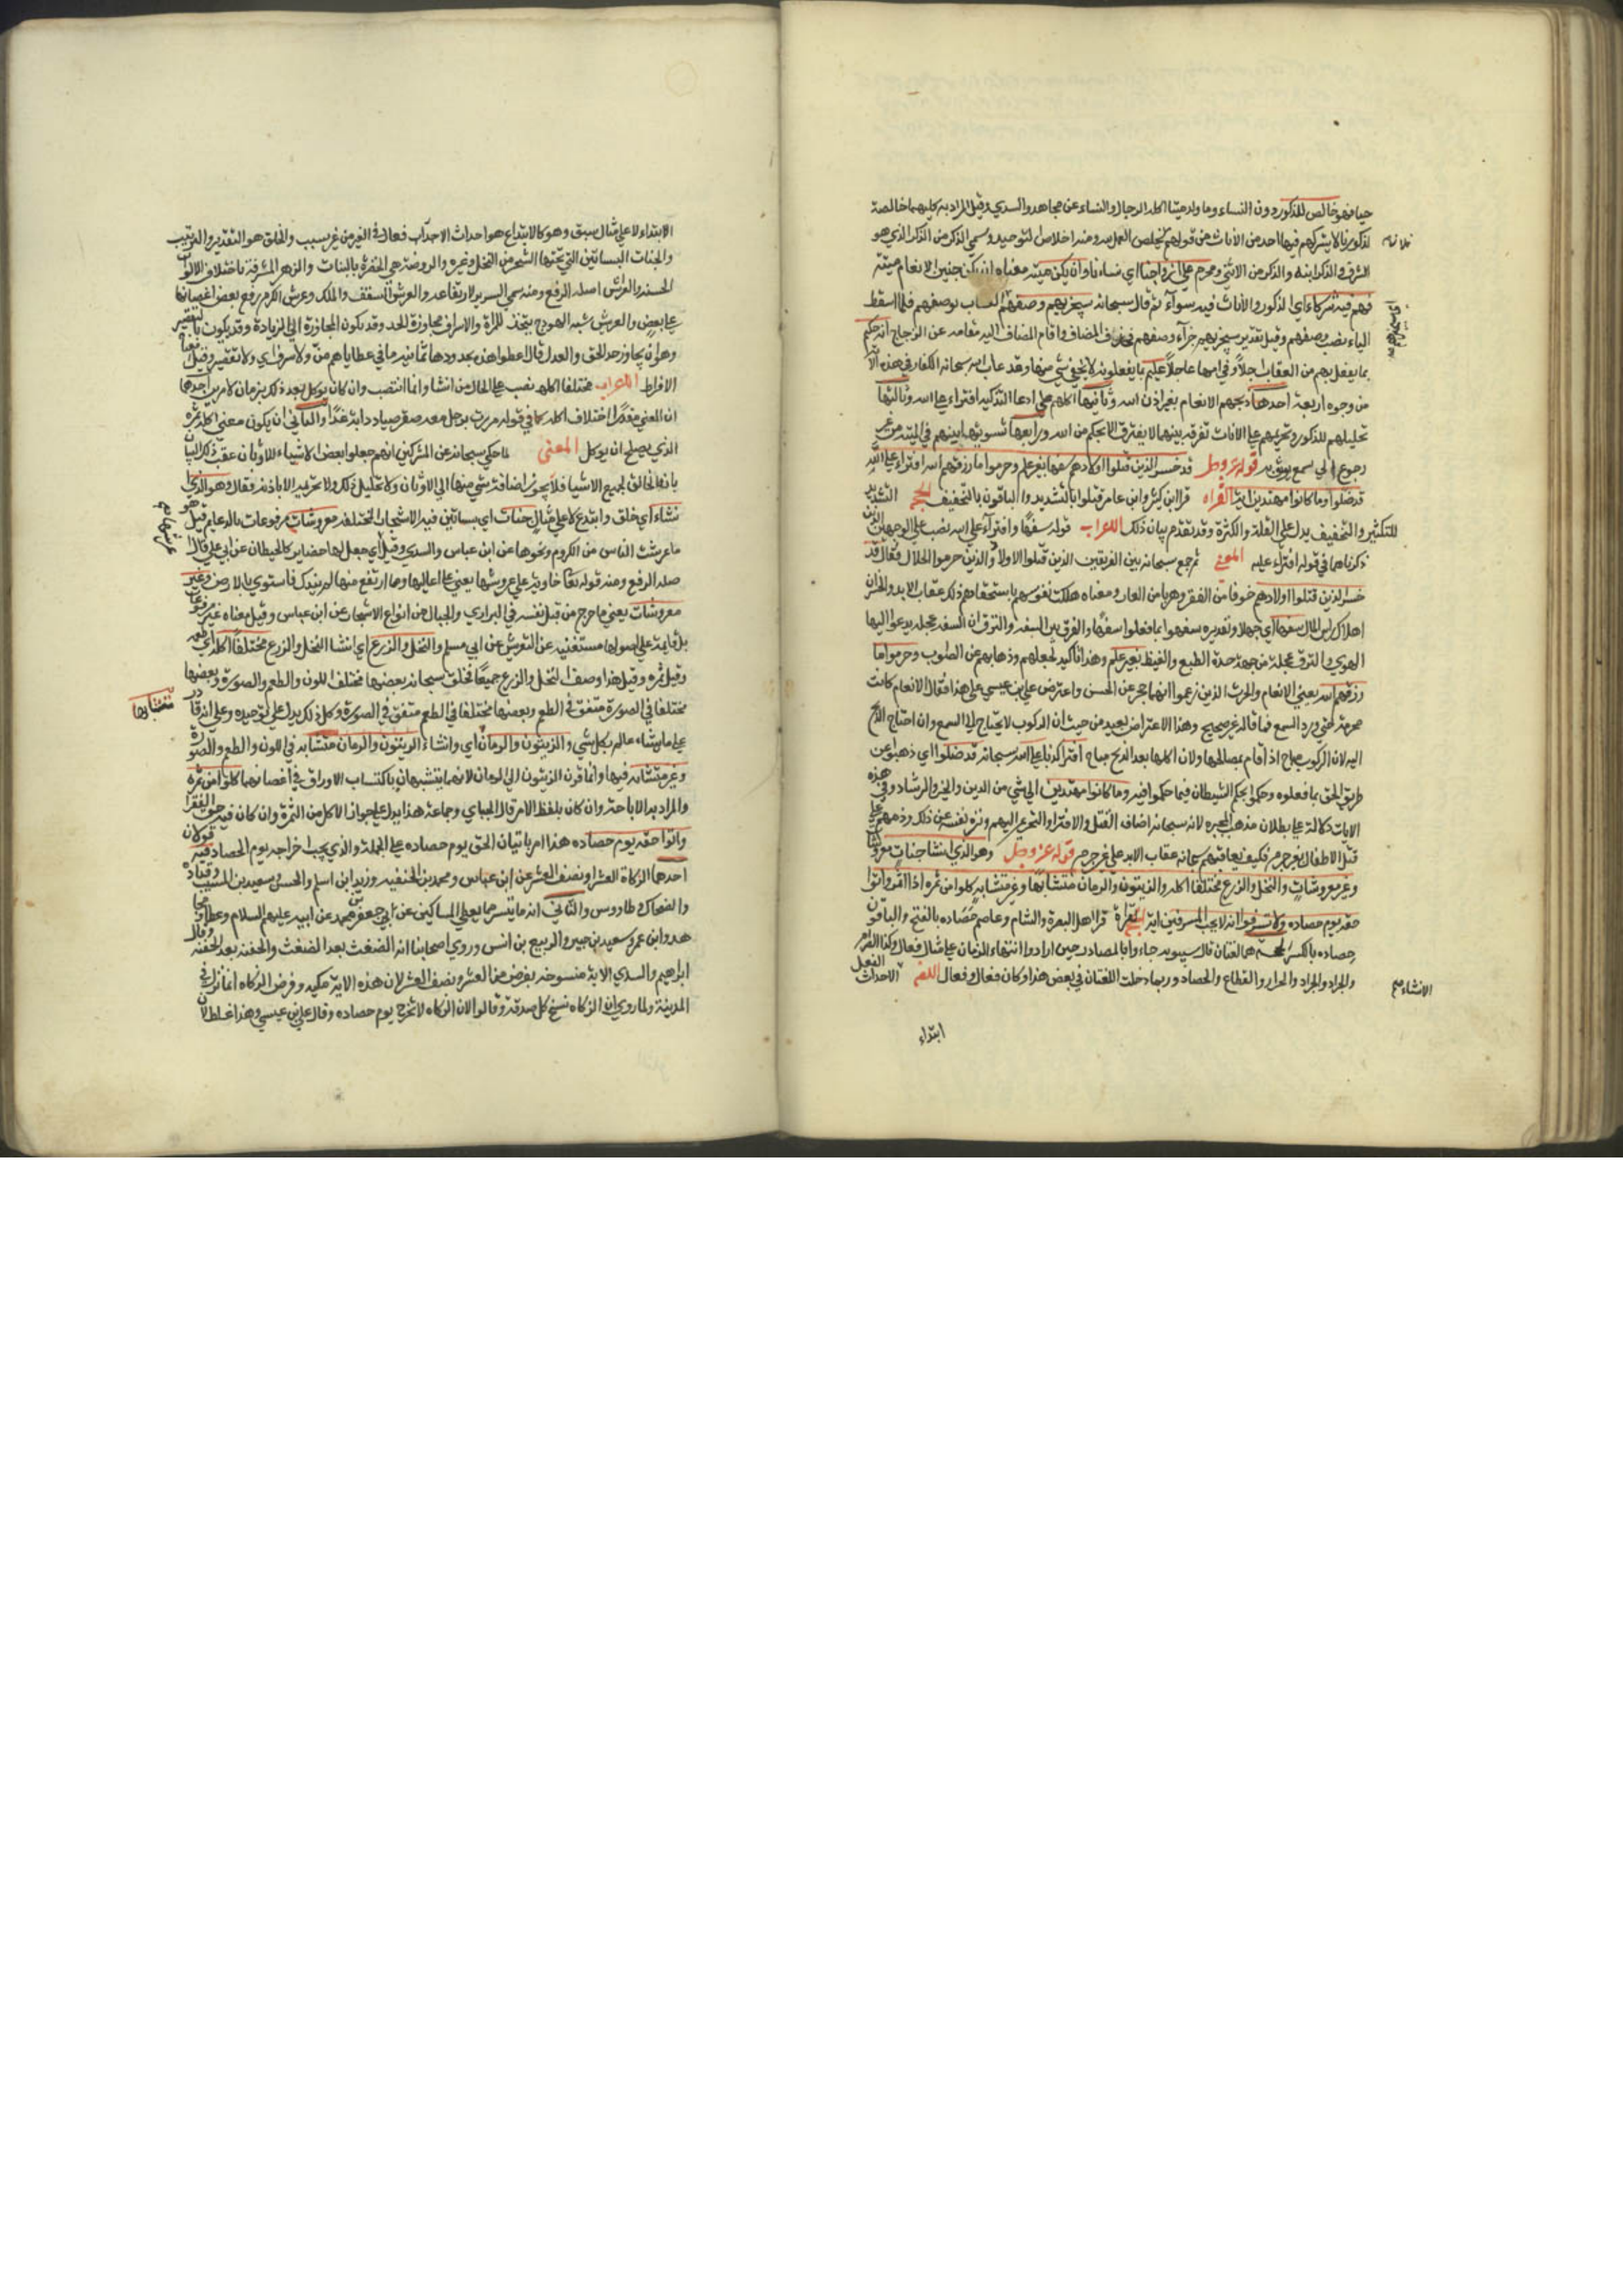 حيا فهو خالص للذكور دون النساء وما ولد ميتا اكله الرجال والنساء عن مجاهد والسدي وقيل المراد به كليهما خالصة
لذكورنا لا يشركهم فيها احد من الاناث من قولهم يخلص العمل لله ومنه اخلاص التوحيد وسمي الذكر من الذكر الذي هو
الشرف والذكر ابنه والذكر من الانثى ومحرم على ازواجنا اي نساءنا وان يكن ميتة معناه ان يكن جنين الانعام ميتة
فهم فيه شركاء اي الذكور والاناث فيه سوآء ثم قال سبحانه سيجزيهم وصفهم العقاب بوصفهم فلما اسقط
الباء نصب وصفهم وقيل تقديره سيجزيهم جزآء وصفهم فحذف المضاف واقام المضاف اليه مقامه عن الزجاج انه حكيم
بما يفعل بهم من العقاب اجلاً وفي امهالها عاجلاً عليم بما يفعلونه لا يخفى شي منها وقد عاب الله سبحانه الكفار في هذه الآ
من وجوه اربعة احدها ذبحهم الانعام بغير اذن الله وثانيها اكلهم على ادعا التذكية افتراء على الله وثالثها
تحليلهم للذكور وتحريمهم على الاناث تفرقه بينهما لا يفترق الا بحكم من الله ورابعها تسويتهم بينهم في الميتة من غير
رجوع الى سمع يوثق به قوله عز وجل قد خسر الذين قتلوا اولادهم سفها بغير علم وحرموا ما رزقهم الله افتراء على الله
قد ضلوا وما كانوا مهتدين اية القراه قرا ابن كثير وابن عامر قتلوا بالتشديد والباقون بالتخفيف الحجة التشديد
للتكثير والتخفيف يدل على القلة والكثرة وقد تقدم بيان ذلك الاعراب قوله سفهًا وافترآء على الله نصب على الوجهين الذين
ذكرناهما في قوله افتراء عليه المعنى ثم جمع سبحانه بين الفريقين الذين قتلوا الاولاد والذين حرموا الحلال فقال قد
خسر الذين قتلوا اولادهم خوفا من الفقر وهربا من العار ومعناه هلكت نفوسهم باستحقاقهم ذلك عقاب الابد والخسران
اهلاك راس المال سفها اي جهلا وتقديره سفهوا بما فعلوا سفهًا والفرق بين السفه والنزق ان السفه عجلة يدعو اليها
الهوى والنزق عجلة من جهة حدة الطبع والغيظ بغير علم وهذا تاكيد لجهلهم وذهابهم عن الصواب وحرموا ما
رزقهم الله يعني الانعام والحرث الذين زعموا انها حجر عن الحسن واعترض علي بن عيسى على هذا فقال الانعام كانت
محرمة حتى ورد السمع فما قاله غير صحيح وهذا الاعتراض بعيد من حيث ان الركوب لا يحتاج الى السمع وان احتاج الذبح
اليه لان الركوب مباح اذا قام بمصالحها ولان اكلها بعد الذبح مباح افتراء كذبا على الله سبحانه قد ضلوا اي ذهبوا عن
طريق الحق بما فعلوه وحكموا بحكم الشيطان فيما حكموا فيه وما كانوا مهتدين الى شي من الدين والخير والرشاد وفي هذه
الايات دلالة على بطلان مذهب المجبره لانه سبحانه اضاف القتل والافتراء والتحريم اليهم ونزه نفسه عن ذلك وذمهم على
قتل الاطفال بغير جرم فكيف يعاقبهم سبحانه عقاب الابد على غير جرم قوله عز وجل وهو الذي انشا جنات معروشات
وغير معروشات والنخل والزرع مختلفا اكله والزيتون والرمان متشابها وغير متشابه كلوا من ثمره اذا اثمر واتوا
حقه يوم حصاده ولا تسرفوا انه لا يحب المسرفين اية القراءة قرا اهل البصرة والشام وعاصم حَصاده بالفتح والباقون
حِصاده بالكسر الحجة هما لغتان قال سيبويه جاءوا بالمصادر حين ارادوا انتهاء الزمان على مثال فعال وكذا الصرام
والجزاز والجداد والقطاع والحصاد وربما دخلت اللغتان في بعض هذا وكان فعال وفعال اللغه الاحداث الفعل
الانشاء صح
ابتداء
الابتداء لا على مثال سبق وهو كالابتداع هو احداث الاحداث فعال في الغير من غير سبب والخلق هو التقدير والترتيب
والجنات البساتين التي يجنها الشجر من النخل وغيره والروضة هي الخضرة بالنبات والزهر المشرقة باختلاف الالوان
الحسنه والعرش اصله الرفع ومنه سمي السرير لارتفاعه والعرش السقف والملك وعرش الكرم رفع بعض اغصانها
على بعض والعريش شبه الهودج يتخذ للمرأة والاسراف مجاوزة الحد وقد يكون المجاوزة الى الزيادة وقد يكون بالتقصير
وهو ان يجاوز حد الحق والعدل قال اعطوا هنيدة يحدوها ثمانية ما في عطاياهم منٌّ ولا سرف اي ولا تقصير وقيل معناه
الافراط الاعراب مختلفا اكله نصب على الحال من انشا وانما انتصب وان كان يوكل بعد ذلك بزمان لامرين احدهما
ان المعنى مقدرًا اختلاف اكله كما في قوله مررت برجل معه صقر صايدا به غدًا والثاني ان يكون معنى اكله ثمره
الذي يصلح ان يوكل المعنى لما حكى سبحانه عن المشركين انهم جعلوا بعض الاشياء للاوثان عقب ذلك البيان
بانه الخالق لجميع الاشيا فلا يجوز اضافة شي منها الى الاوثان ولا تحليل ذلك ولا تحريمه الا باذنه فقال وهو الذي
انشاء اي خلق وابتدع لا على مثال جنات اي بساتين فيها الاشجار المختلفة معروشات مرفوعات بالدعايم قيل هو
ما عرشه الناس من الكروم ونحوها عن ابن عباس والسدي وقيل اي جعل لها حضاير كالحيطان عن ابي علي قال
اصله الرفع ومنه قوله تعا خاوية على عروشها يعني على اعاليها وما ارتفع منها لم يندك فاستوى بالارض وغير
معروشات يعني ما خرج من قبل نفسه في البراري والجبال من انواع الاشجار عن ابن عباس وقيل معناه غير مرفوعات
بل قايمة على اصولها مستغنيه عن التعريش عن ابي مسلم والنخل والزرع اي انشا النخل والزرع مختلفا اكله اي طعمه
وقيل ثمره وقيل هذا وصف النخل والزرع جميعًا فخلق سبحانه بعضها مختلف اللون والطعم والصورة وبعضها
مختلفا في الصورة متفق في الطعم وبعضها مختلفا في الطعم متفق في الصورة وكل ذلك يدل على توحيده وعلى انه قادر
على ما يشاء عالم بكل شي والزيتون والرمان اي وانشاء الزيتون والرمان متشابه في اللون والطعم والصورة
متشابها
وغير متشابه فيها وانما قرن الزيتون الى الرمان لانهما يتشبهان باكتساب الاوراق في اغصانهما كلوا من ثمره
والمراد به الاباحة وان كان بلفظ الامر قال الجباي وجماعة هذا يدل على جواز الاكل من الثمرة وان كان فيه حق الفقرا
واتوا حقه يوم حصاده هذا امر باتيان الحق يوم حصاده على الجملة والذي يجب اخراجه يوم الحصاد فيه قولان
احدهما الزكاة العشر او نصف العشر عن ابن عباس ومحمد بن الحنفيه وزيد ابن اسلم والحسن وسعيد بن المسيب وقتاده
والضحاك وطاووس والثاني انه ما يتسر مما يعطى المساكين عن ابي جعفر محمد عن ابيه عليهم السلام وعطا ومجا
هد وابن عمر وسعيد بن جبير والربيع بن انس وروى اصحابنا انه الضغث بعد الضغث والحفنه بعد الحفنه وقال
ابراهيم والسدي الاية منسوخه بفرض من العشر ونصف العشر لان هذه الاية مكيه وفرض الزكاه انما نزل في
المدينة ولما روي ان الزكاه نسخ كل صدقة وقالوا لان الزكاه لا تخرج يوم حصاده وقال علي بن عيسى وهذا غلط لان